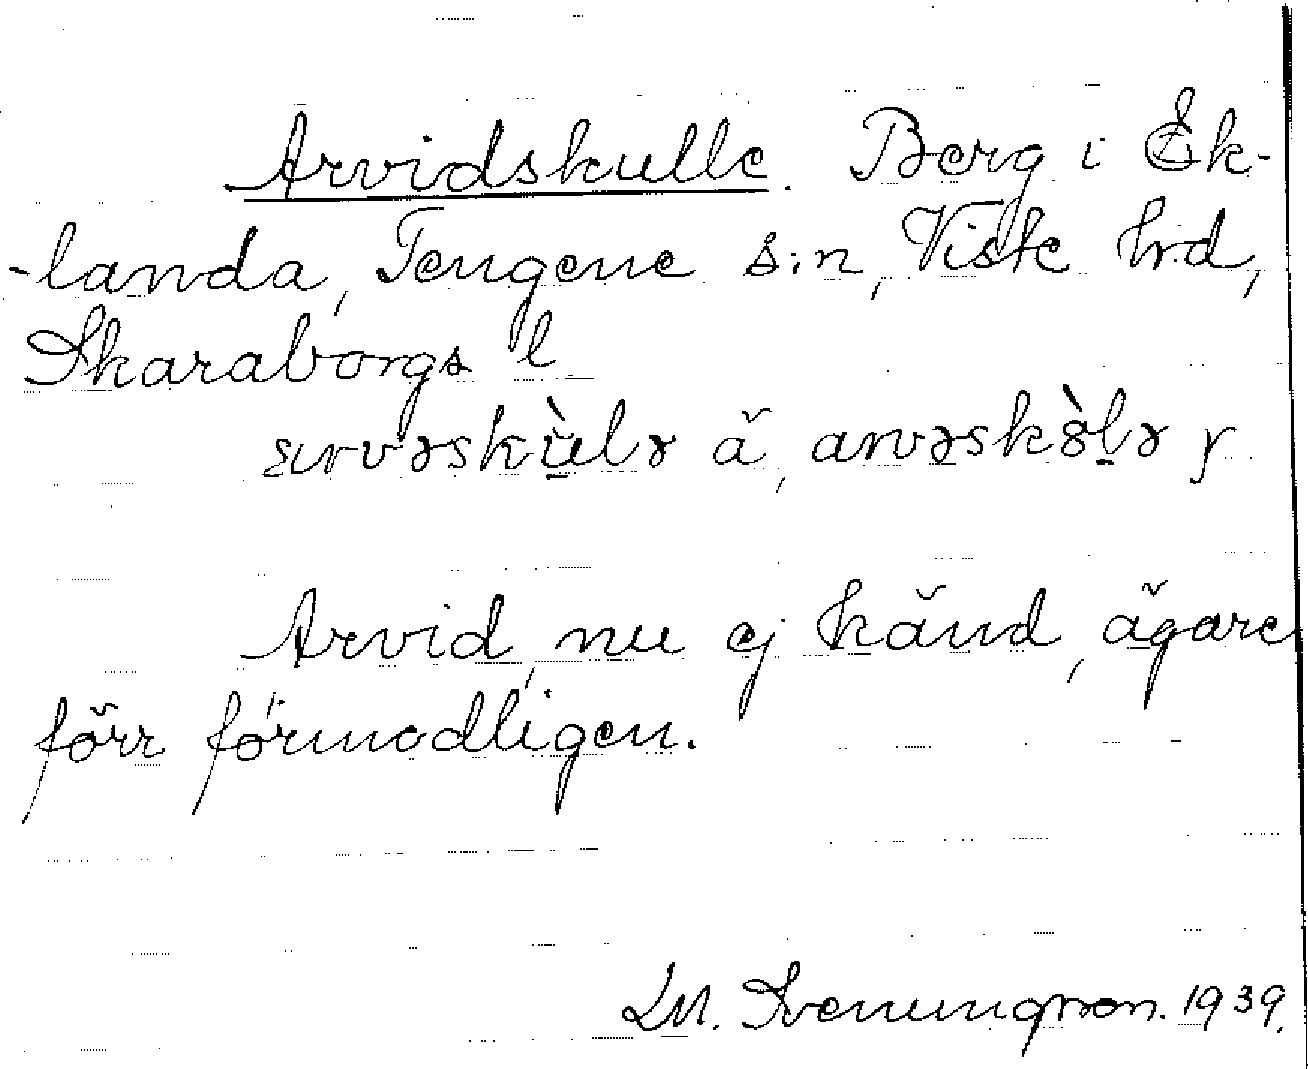 Arvidskulle. Berg i Ek-
-landa, Tengene s:n, Viste hrd,
Skaraborgs l
arvəskùlə ä, arvəskòlə y
Arvid, nu ej känd, ägare
förr förmodligen.
Svenungsson. 1939.